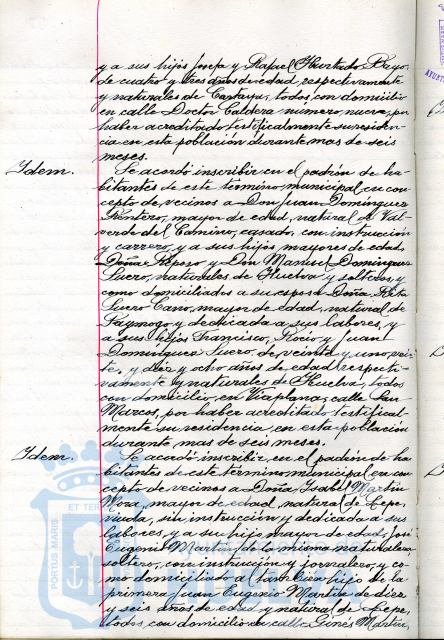 y a sus hijos Josefa y Rafael Hurtado Bayo,
de cuatro y tres años de edad, respectivamente
y naturales de Cartaya, todos con domicilio
en calle Doctor Caldera número nueve, por
haber acreditado testificalmente su residen-
cia en esta población durante mas de seis
meses.
Idem.
Se acordó inscribir en el padrón de ha-
bitantes de este término municipal, en con-
cepto de vecinos a Don Juan Domínguez
Rentero, mayor de edad, natural de Val-
verde del Camino, casado, con instrucción
y carrero, y a sus hijos mayores de edad,
Doña Reposo y Don Manuel Domínguez
Suero, naturales de Huelva y solteros, y
como domiciliados a su esposa Doña Rita
Suero Cano, mayor de edad, natural de
Paymogo y dedicada a sus labores, y
a sus hijos Francisco, Rocío y Juan
Domínguez Suero, de veinte y uno, vein-
te, y diez y ocho años de edad respecti-
vamente y naturales de Huelva, todos
con domicilio en Viaplana, calle San
Marcos, por haber acreditado testifical-
mente su residencia en esta población
durante mas de seis meses.
Idem.
Se acordó inscribir en el padrón de ha-
bitantes de este término municipal en con-
cepto de vecinos a Doña Isabel Martín
Mora, mayor de edad, natural de Lepe,
viuda, sin instrucción y dedicada a sus
labores, y a su hijo mayor de edad, José
Eugenio Martín, de la misma naturaleza
soltero, con instrucción y jornalero, y co-
mo domiciliado al también hijo de la
primera Juan Eugenio Martín de diez
y seis años de edad y natural de Lepe,
todos con domicilio en calle Ginés Martín
PORTUS MARIS
ET TER